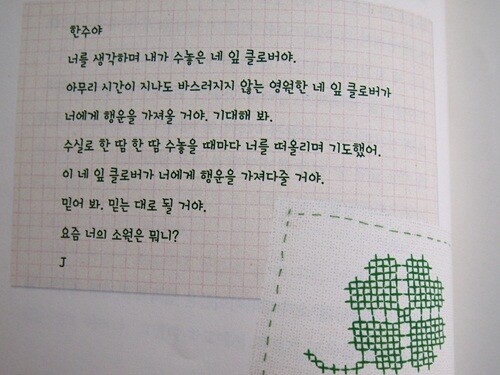 한주야
너를 생각하며 내가 수놓은 네 잎 클로버야.
아무리 시간이 지나도 바스러지지 않는 영원한 네 잎 클로버가
너에게 행운을 가져올 거야. 기대해 봐.
수실로 한 땀 한 땀 수놓을 때마다 너를 떠올리며 기도했어.
이 네 잎 클로버가 너에게 행운을 가져다줄 거야.
믿어 봐. 믿는 대로 될 거야.
요즘 너의 소원은 뭐니?
J